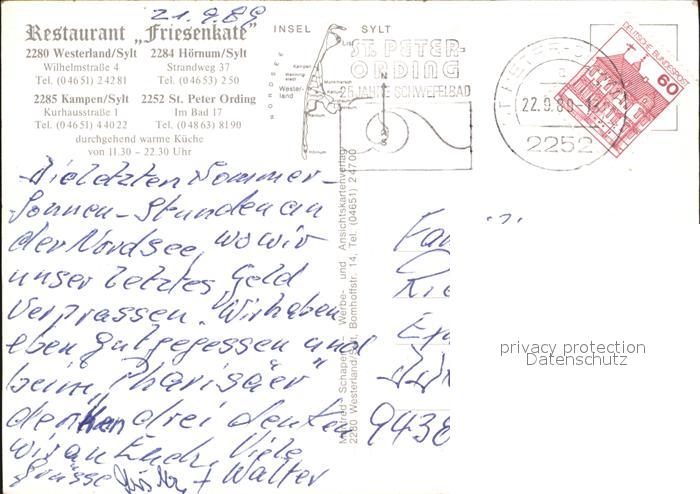 21.9.89
Restaurant „Friesenkate"
2280 Westerland/Sylt 2284 Hörnum/Sylt
Wilhelmstraße 4 Strandweg 37
Tel. (0 46 51) 2 42 81 Tel. (0 46 53) 2 50
2285 Kampen/Sylt 2252 St. Peter Ording
Kurhausstraße 1 Im Bad 17
Tel. (0 46 51) 4 40 22 Tel. (0 48 63) 81 90
durchgehend warme Küche
von 11.30 - 22.30 Uhr
INSEL SYLT
NORDSEE
List
Kampen
Westerland
Hörnum
ST. PETER-
ORDING
25 JAHRE SCHWEFELBAD
22.9.89
2252
DEUTSCHE BUNDESPOST
60
Die letzten Sommer-
Sonnen-Stunden an
der Nordsee, wo wir
unser letztes Geld
verprassen. Wir haben
eben gut gegessen und
beim „Pharisäer"
denken drei denken
wir an Euch. Viele
Grüsse + Walter
Manfred Schaper, Werbe- und Ansichtskartenverlag
2280 Westerland/Sylt, Bomhoffstr. 14, Tel. (04651) 24700
Fam
943
privacy protection
Datenschutz